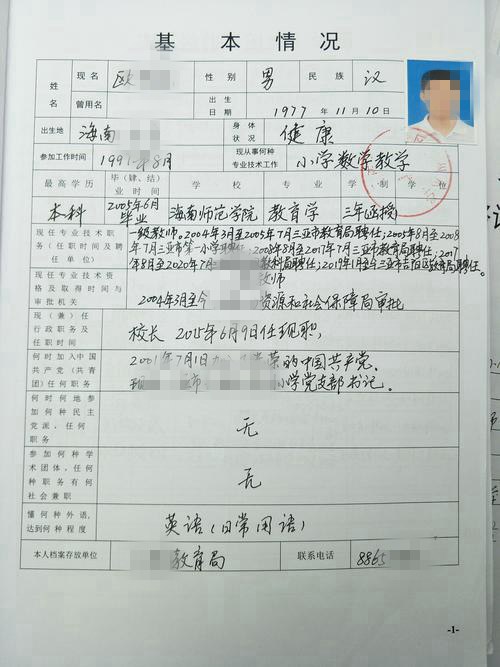 基本情况
姓名 现名 欧 性别 男 民族 汉
曾用名 出生日期 1977年11月10日
出生地 海南 身体状况 健康
参加工作时间 199 年8月 现从事何种专业技术工作 小学数学教学
最高学历 毕(肄、结)业时间 学校 专业 学制 学位
本科 2005年6月毕业 海南师范学院 教育学 三年函授
现任专业技术职务(任职时间及聘任单位) 一级教师。2004年3月至2005年7月三亚市教育局聘任;2005年8月至2008
年7月三亚市第一小学聘任;2008年8月至2017年7月三亚市教育局聘任;2017
年8月至2020年7月 教科局聘任;2019年1月至今三亚市吉阳区教育局聘任。
现任专业技术资格及取得时间与审批机关 教师
2004年3月至今 资源和社会保障局审批
现(兼)任行政职务及任职时间 校长 2015年6月9日任现职,
何时加入中国共产党(共青团)任何职务 2001年7月1日加 荣的中国共产党。
现 市 小学党支部书记。
何时何地参加何种民主党派,任何职务 无
参加何种学术团体,任何种职务有何社会兼职 无
懂何种外语,达到何种程度 英语(日常用语)
本人档案存放单位 教育局 联系电话 8865
-1-